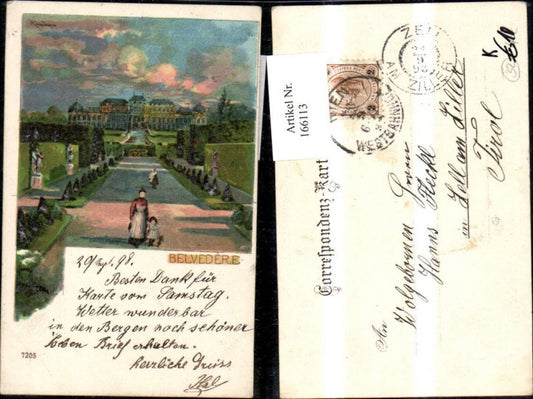 BELVEDERE
29/Sept. 98.
Besten Dank für
Karte vom Samstag.
Wetter wunderbar
in den Bergen noch schöner
lieben Brief erhalten.
herzliche Grüss
7205
Artikel Nr.
166113
ZELL
AM ZILLER
WIEN
Correspondenz-Kart
An
Wolgeboren Herrn
Hanns
in Zell am Ziller
Tirol
K